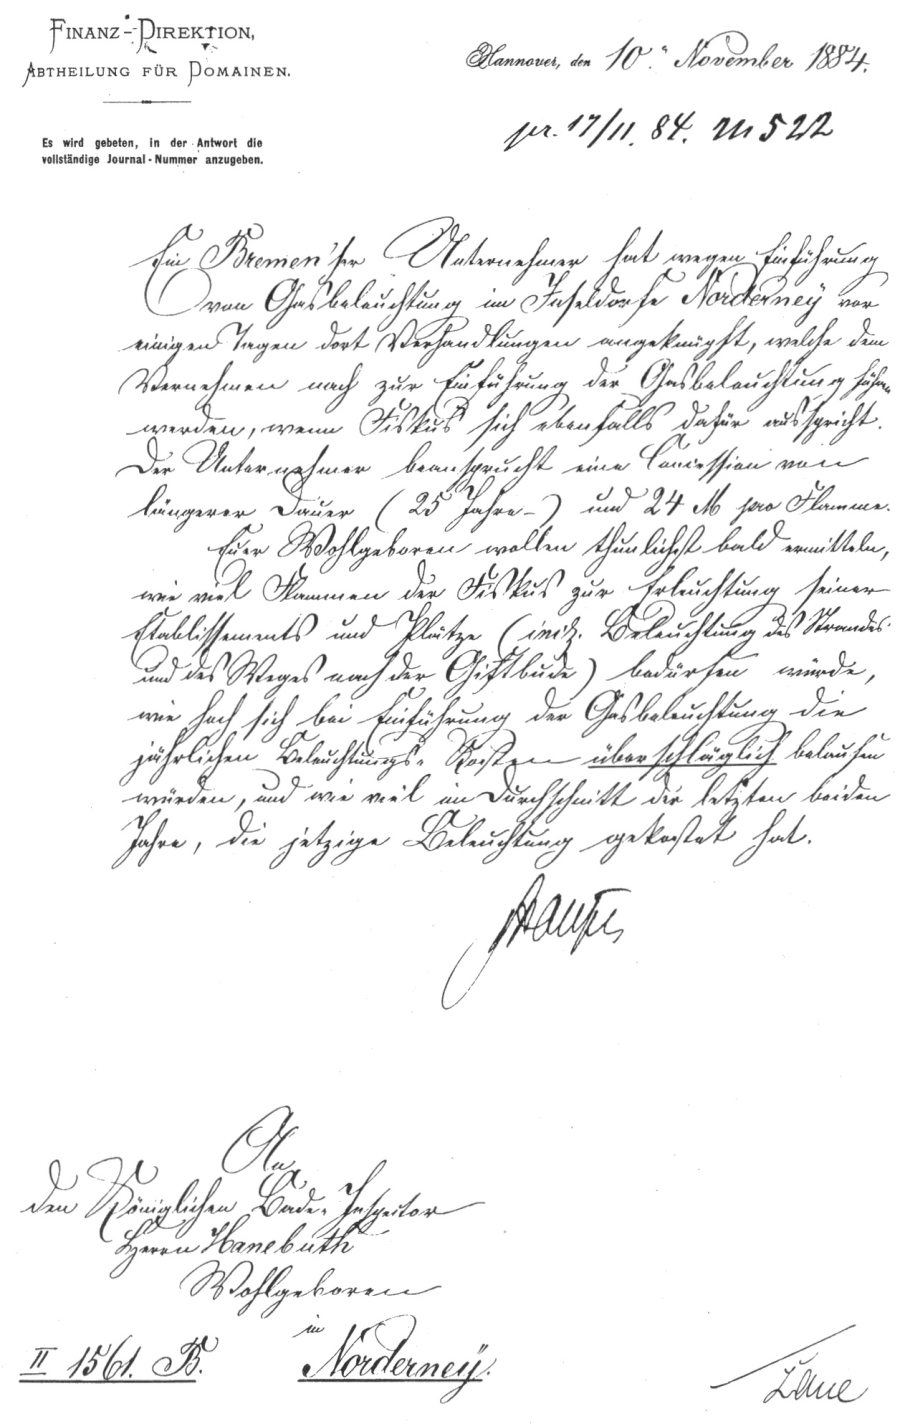 FINANZ-DIREKTION,
ABTHEILUNG FÜR DOMAINEN.
Es wird gebeten, in der Antwort die
vollständige Journal-Nummer anzugeben.
Hannover, den 10. November 1884.
pr. 17/11. 84. M 522
Ein Bremen'ser Unternehmer hat wegen Einführung
von Gasbeleuchtung im Inseldorfe Norderney vor
einigen Tagen dort Verhandlungen angeknüpft, welche dem
Vernehmen nach zur Einführung der Gasbeleuchtung führen
werden, wenn Fiskus sich ebenfalls dafür ausspricht.
Der Unternehmer beansprucht eine Concession von
längerer Dauer (25 Jahre-) und 24 M pro Flamme.
Euer Wohlgeboren wollen thunlichst bald ermitteln,
wie viel Flammen der Fiskus zur Erleuchtung seiner
Etablissements und Plätze (incl. Beleuchtung des Strandes
und des Weges nach der Giftbude) bedürfen würde,
wie hoch sich bei Einführung der Gasbeleuchtung die
jährlichen Beleuchtungs-Kosten überschläglich belaufen
würden, und wie viel im Durchschnitt der letzten beiden
Jahre, die jetzige Beleuchtung gekostet hat.
An
den Königlichen Bade-Inspector
Herrn Hanebuth
Wohlgeboren
in
II 1561. B. Norderney.